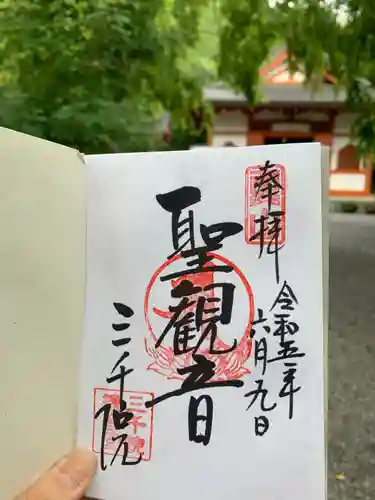 奉拝
令和五年
六月九日
聖観音
三千院